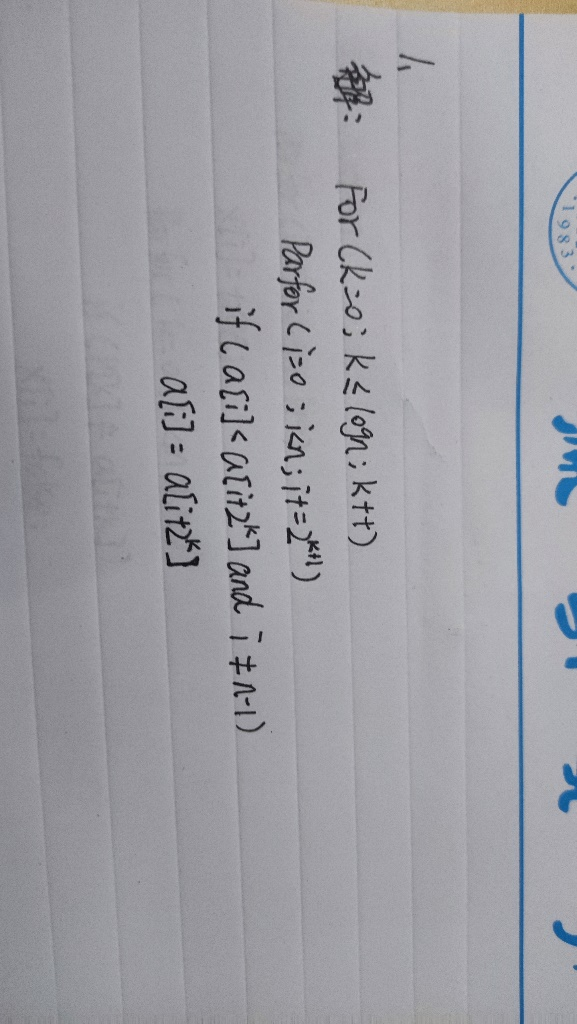 1.
解: For (k=0; k≤logn; k++)
Parfor (i=0; i<n; i+=2^{k+1})
if (a[i]<a[i+2^k] and i≠n-1)
a[i] = a[i+2^k]
1983